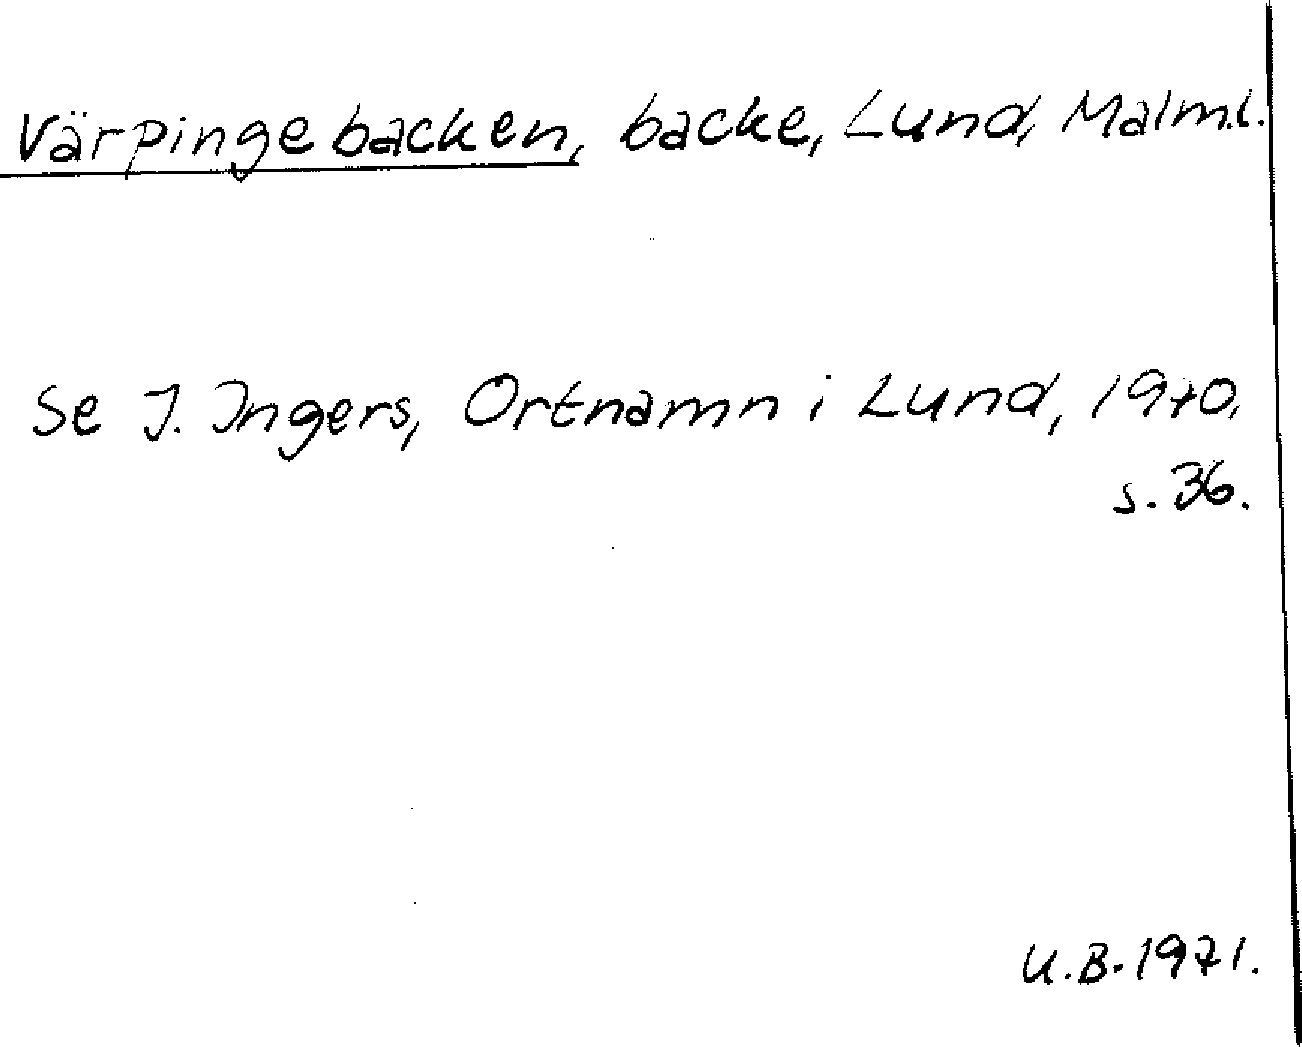 Värpingebacken, backe, Lund, Malm.l.
Se I. Ingers, Ortnamn i Lund, 1970,
s. 36.
U.B. 1971.